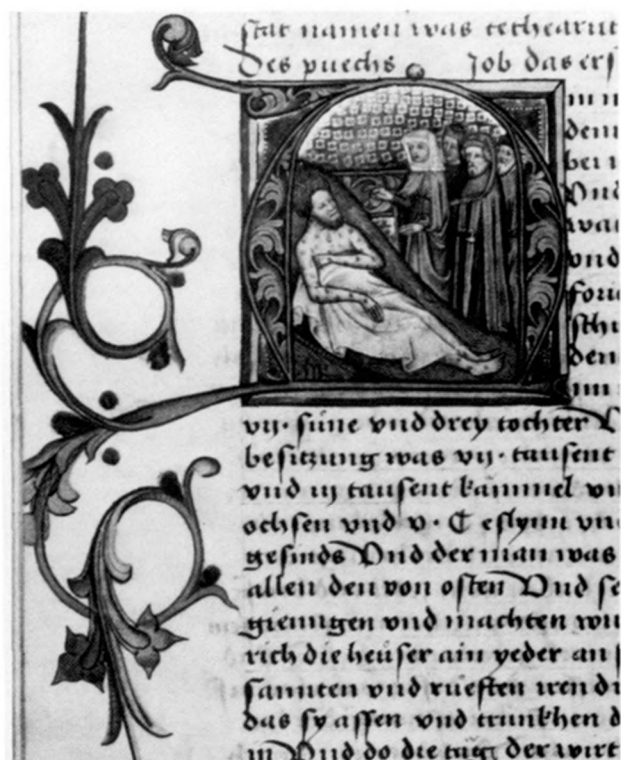 stat namen was
des puechs Job das ers
in
dem
bei
Vnd
was
vnd
den
vij · süne vnd drey tochter
besitzung was vij · tausent
vnd iij tausent kämmel
ochsen vnd v · C eslynn
gesinds Vnd der man was
allen den von osten Vnd
giennigen vnd machten
rich die heüser ain yeder an
sannten vnd rüeften
das sy assen vnd trunkhen
in Vnd do die täg der wirt